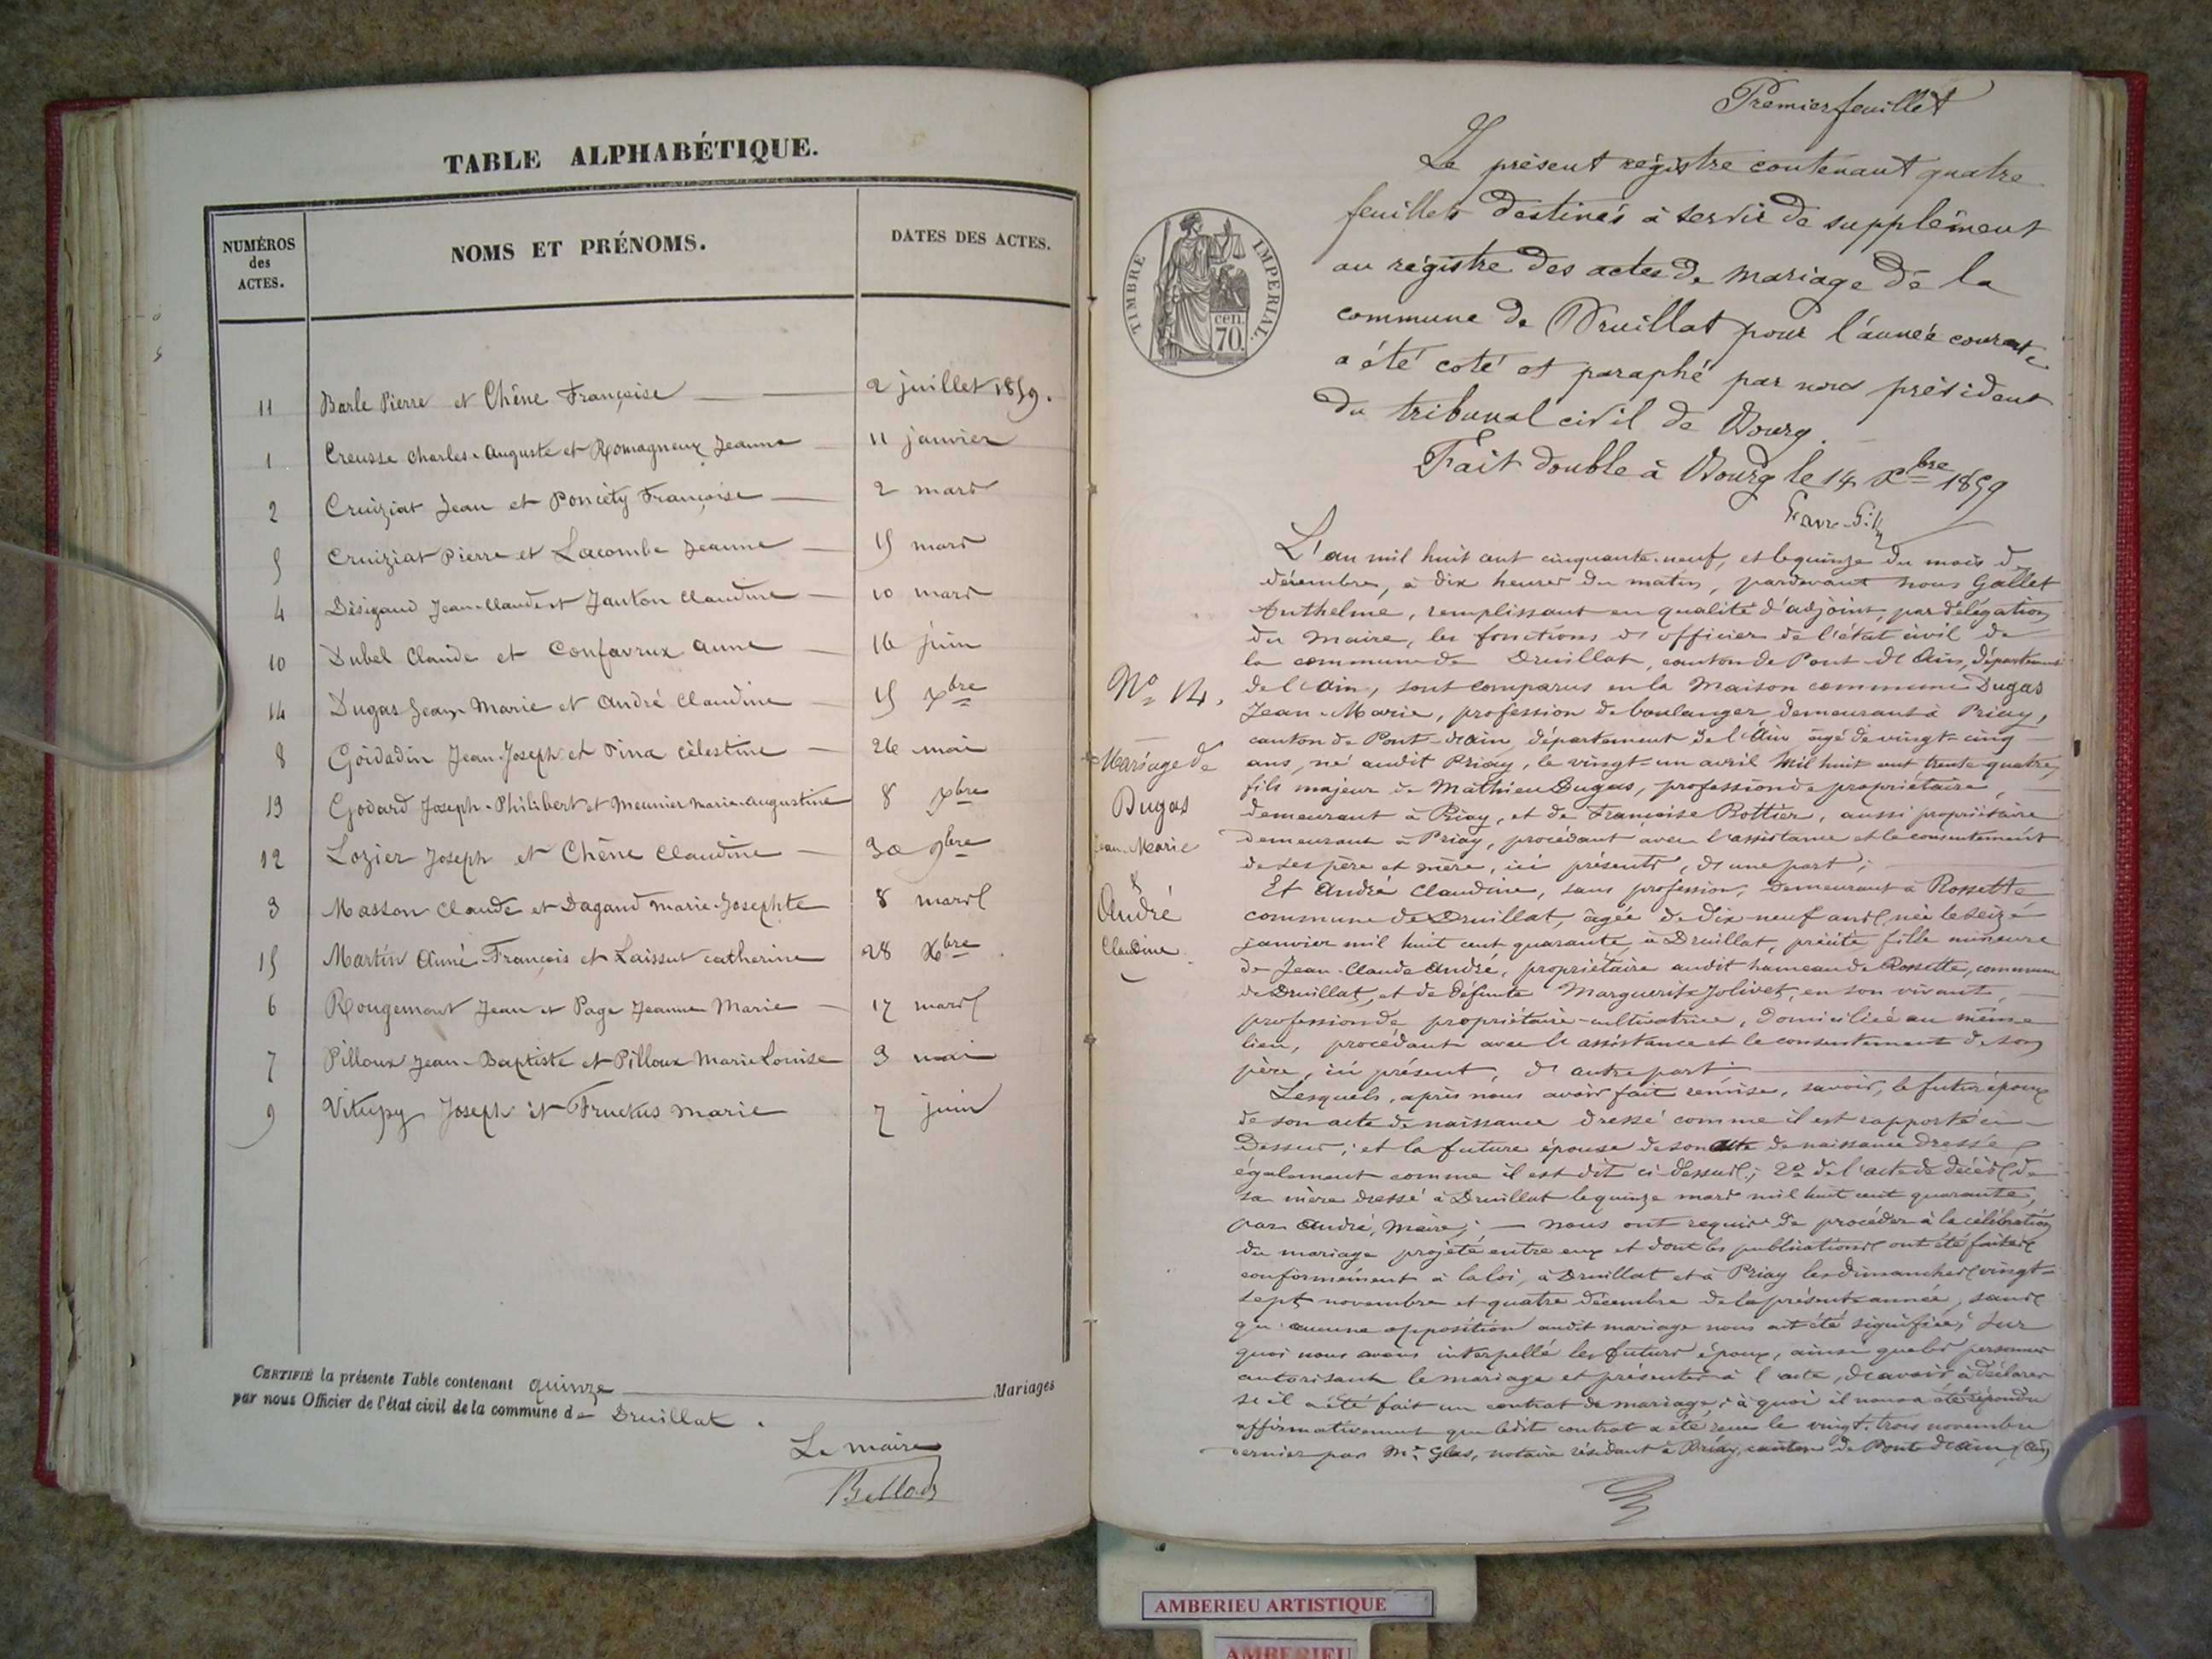 TABLE ALPHABÉTIQUE.
NUMÉROS
des
ACTES.
NOMS ET PRÉNOMS.
DATES DES ACTES.
11 Barle Pierre et Chêne Françoise 2 juillet 1859.
1 Creusse Charles-Auguste et Romagneux Jeanne 11 janvier
2 Cruiziat Jean et Poncéty Françoise 2 mars
5 Cruiziat Pierre et Lacombe Jeanne 15 mars
4 Désigaud Jean-Claude et Janton Claudine 10 mars
10 Dubel Claude et Confavrux Anne 16 juin
14 Dugas Jean-Marie et André Claudine 15 Xbre
8 Goidadin Jean-Joseph et Célestine 26 mai
13 Godard Joseph-Philibert et Meunier Marie-Augustine 8 Xbre
12 Lozier Joseph et Chêne Claudine 30 9bre
3 Masson Claude et Dagaud Marie-Josephte 8 mars
15 Martin Aimé-François et Laissut Catherine 28 Xbre
6 Rougemont Jean et Page Jeanne Marie 17 mars
7 Pilloux Jean-Baptiste et Pilloux Marie Louise 3 mai
9 Vitupy Joseph et Fructus Marie 7 juin
CERTIFIÉ la présente Table contenant quinze Mariages
par nous Officier de l'état civil de la commune de Druillat.
Le maire
Premier feuillet
Le présent registre contenant quatre
feuillets destinés à servir de supplément
au registre des actes de mariage de la
commune de Druillat pour l'année courante
a été coté et paraphé par nous président
du tribunal civil de Bourg.
Fait double à Bourg le 14 Xbre 1859
TIMBRE IMPERIAL.
cen.
70.
L'an mil huit cent cinquante-neuf, et le quinze du mois de
décembre, à dix heures du matin, pardevant nous Gallet
Anthelme, remplissant en qualité d'adjoint, par délégation
du Maire, les fonctions d'officier de l'état civil de
la commune de Druillat, canton de Pont-d'Ain, département
de l'Ain, sont comparus en la Maison commune Dugas
Jean-Marie, profession de boulanger demeurant à Priay,
canton de Pont-d'ain, département de l'Ain âgé de vingt-cinq
ans, né audit Priay, le vingt-un avril mil huit cent trente-quatre,
fils majeur de Mathieu Dugas, profession de propriétaire,
demeurant à Priay, et de Françoise Bottier, aussi propriétaire
demeurant à Priay, procédant avec l'assistance et le consentement
de ses père et mère, ici présents, d'une part;
Et André Claudine, sans profession, demeurant à Rossette
commune de Druillat, âgée de dix-neuf ans, née le seize
janvier mil huit cent quarante, à Druillat, précité, fille mineure
de Jean-Claude André, propriétaire audit hameau de Rossette, commune
de Druillat, et de défunte Marguerite Jolivet, en son vivant,
profession de propriétaire-cultivatrice, domiciliée au même
lieu, procédant avec l'assistance et le consentement de son
père, ici présent, d'autre part.
Lesquels, après nous avoir fait remise, savoir, le futur époux
de son acte de naissance dressé comme il est rapporté ci-
Dessus; et la future épouse de son acte de naissance dressé
également comme il est dit ci-dessus; 2º de l'acte de décès de
sa mère dressé à Druillat le quinze mars mil huit cent quarante,
par André, maire; — nous ont requis de procéder à la célébration
du mariage projeté entre eux et dont les publications ont été faites
conformément à la loi, à Druillat et à Priay les dimanches vingt-
sept novembre et quatre décembre de la présente année, sans
qu'aucune opposition audit mariage nous ait été signifiée; sur
quoi nous avons interpellé les futurs époux, ainsi que les personnes
autorisant le mariage et présentes à l'acte, d'avoir à déclarer
s'il a été fait un contrat de mariage; à quoi il nous a été répondu
affirmativement que ledit contrat a été reçu le vingt-trois novembre
dernier par Mr. Glas, notaire résidant à Priay, canton de Pont-d'ain, (Ain)
Nº 14.
Mariage de
Dugas
Jean-Marie
&
André
Claudine
AMBERIEU ARTISTIQUE
AMBERIEU